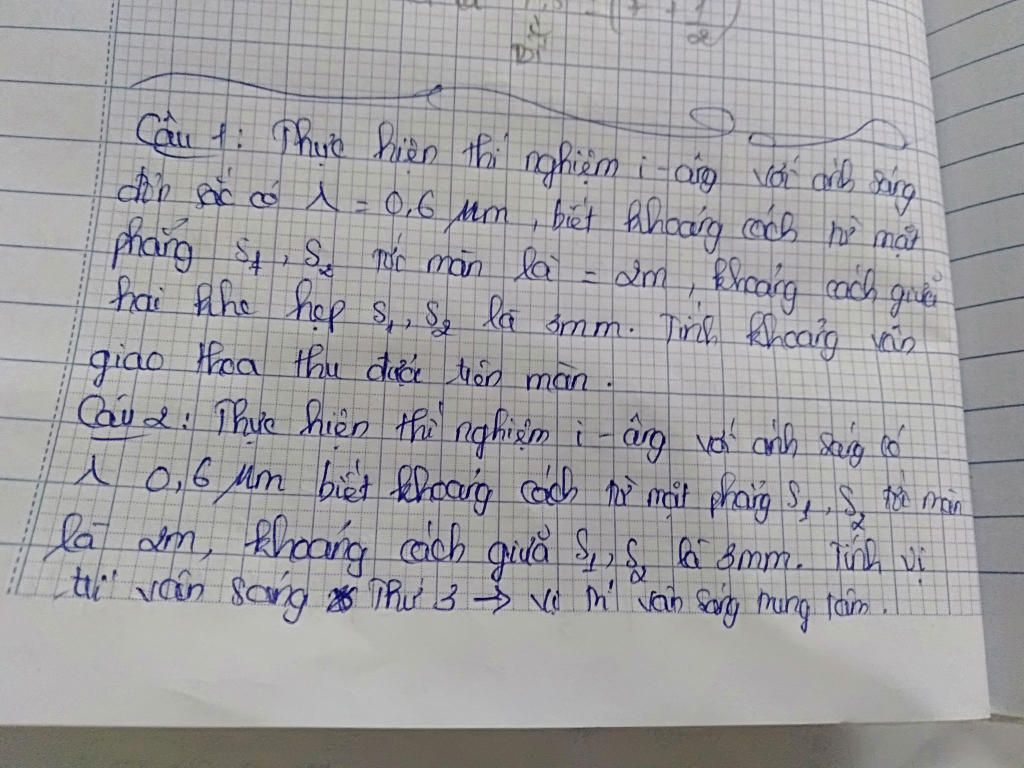 Câu 1: Thực hiện thí nghiệm i-âng với ánh sáng
đơn sắc có λ = 0,6 μm, biết khoảng cách từ mặt
phẳng S1, S2 tới màn là = 2m, khoảng cách giữa
hai khe hẹp S1, S2 là 3mm. Tính khoảng vân
giao thoa thu được trên màn.
Câu 2: Thực hiện thí nghiệm i-âng với ánh sáng có
λ 0,6 μm biết khoảng cách từ mặt phẳng S1, S2 tới màn
là 2m, khoảng cách giữa S1, S2 là 3mm. Tính vị
trí vân sáng thứ 3 → vị trí vân sáng trung tâm.